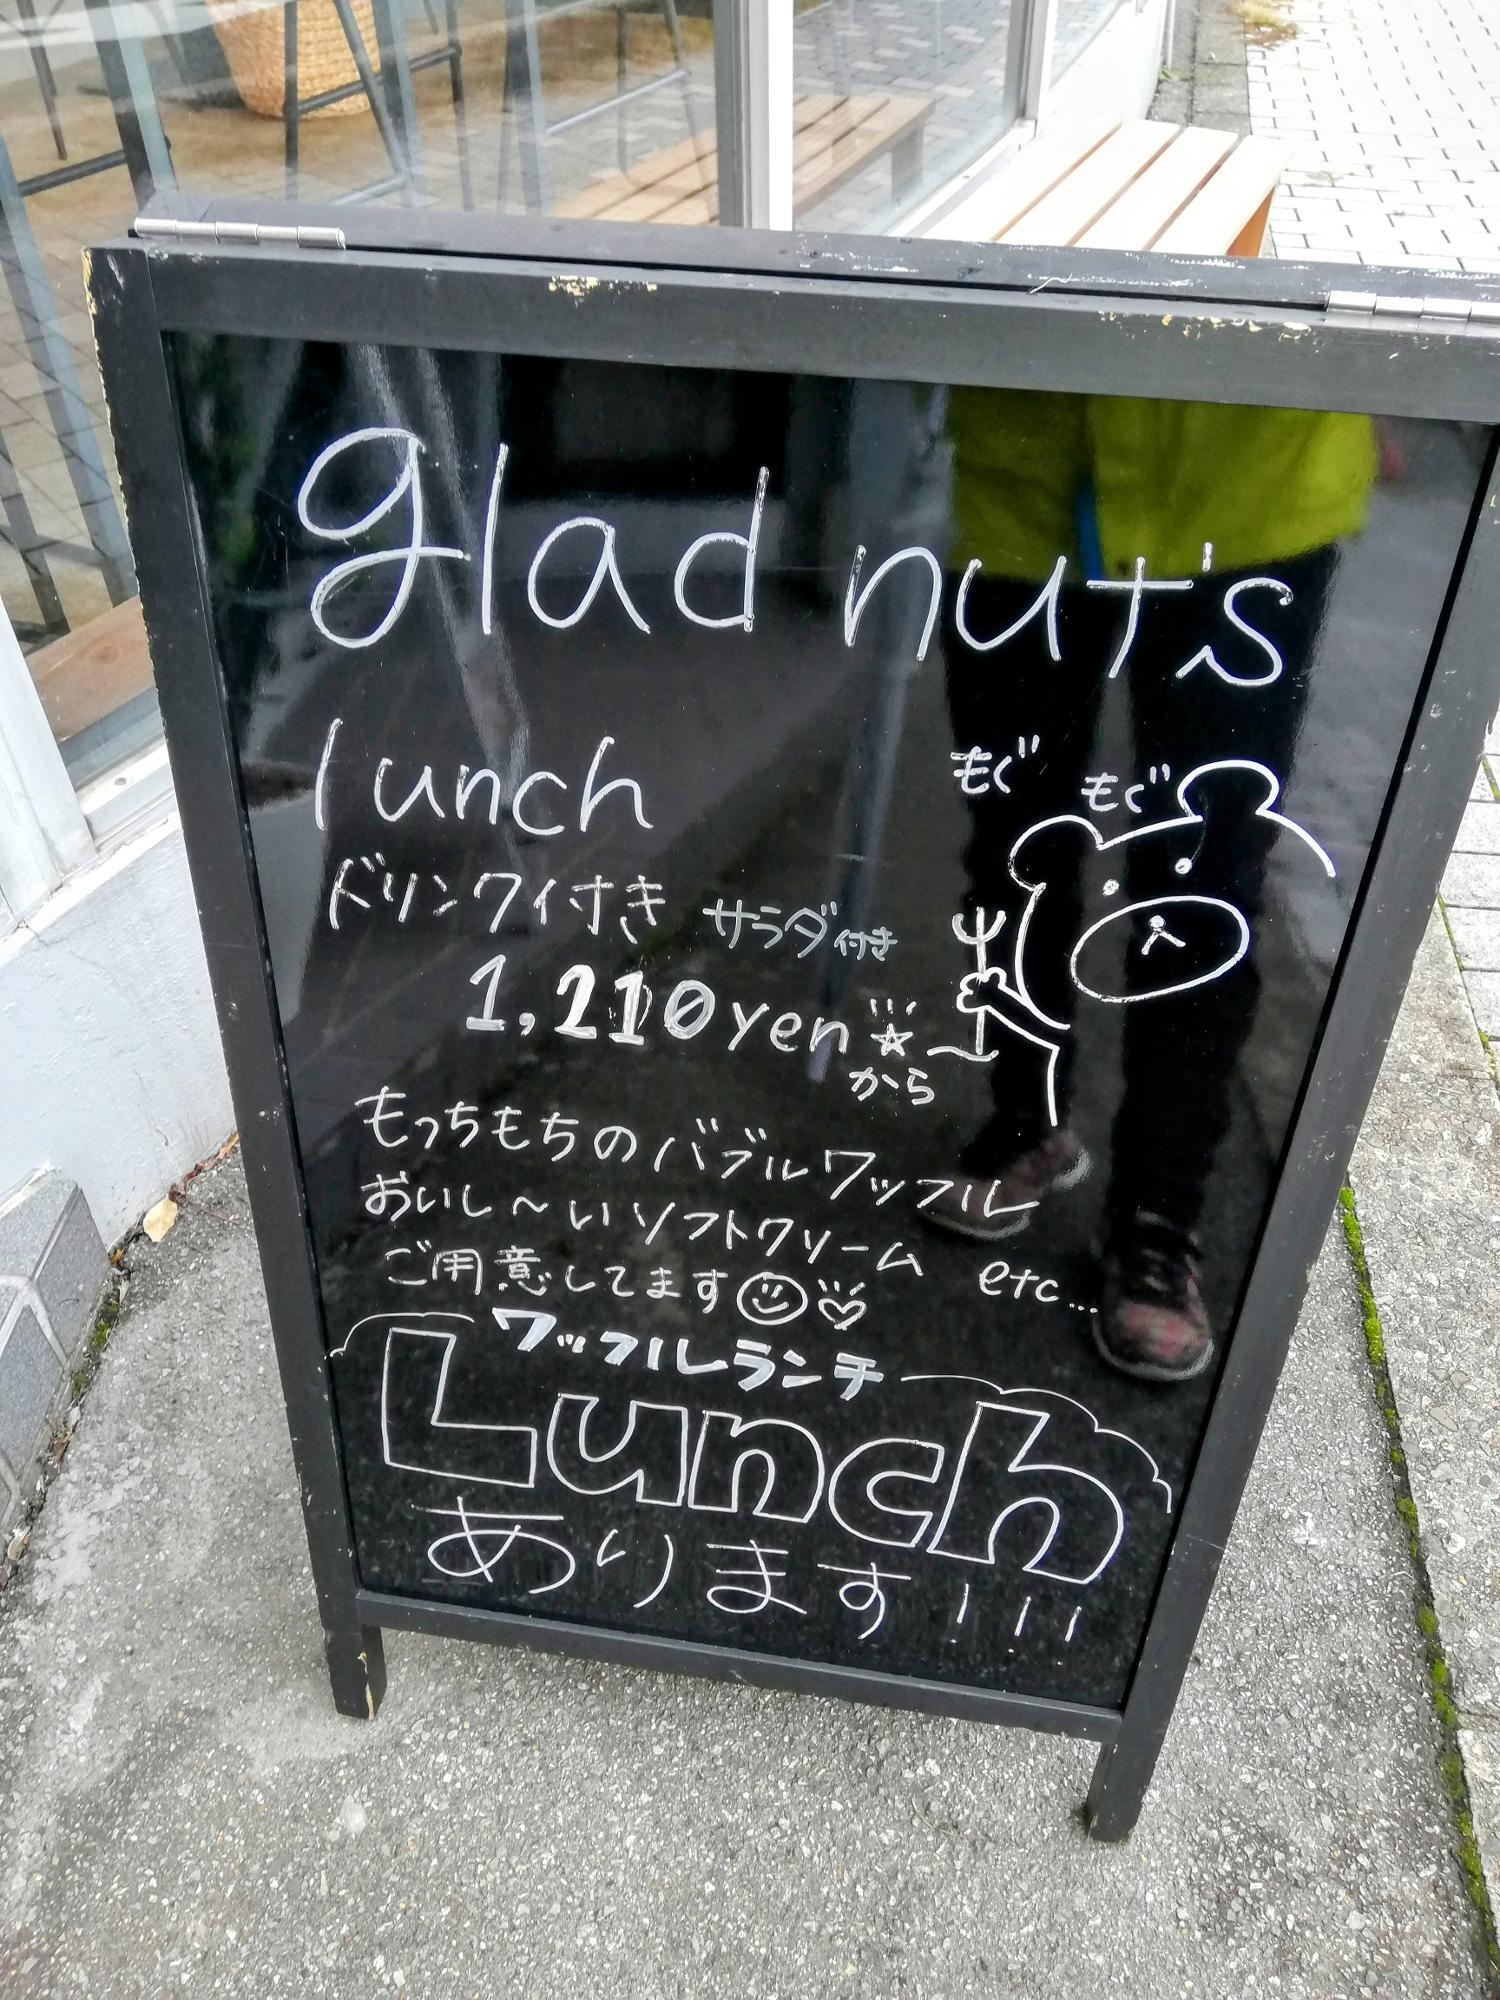 glad nut's
lunch
もぐ もぐ
ドリンク付き サラダ付き
1,210yen
から
もっちもちのバブルワッフル
おいし〜いソフトクリーム etc...
ご用意してます
ワッフルランチ
Lunch
あります!!!